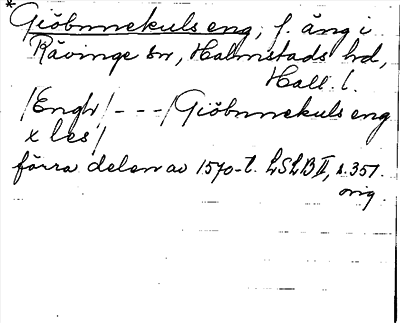 * Giöbnnekuls eng, f. äng i
Rävinge sn, Halmstads hd,
Hall. l.
/Engh/ - - - / Giöbnnekuls eng
x les /
förra delen av 1570-t. LSLB II, s. 351.
orig.